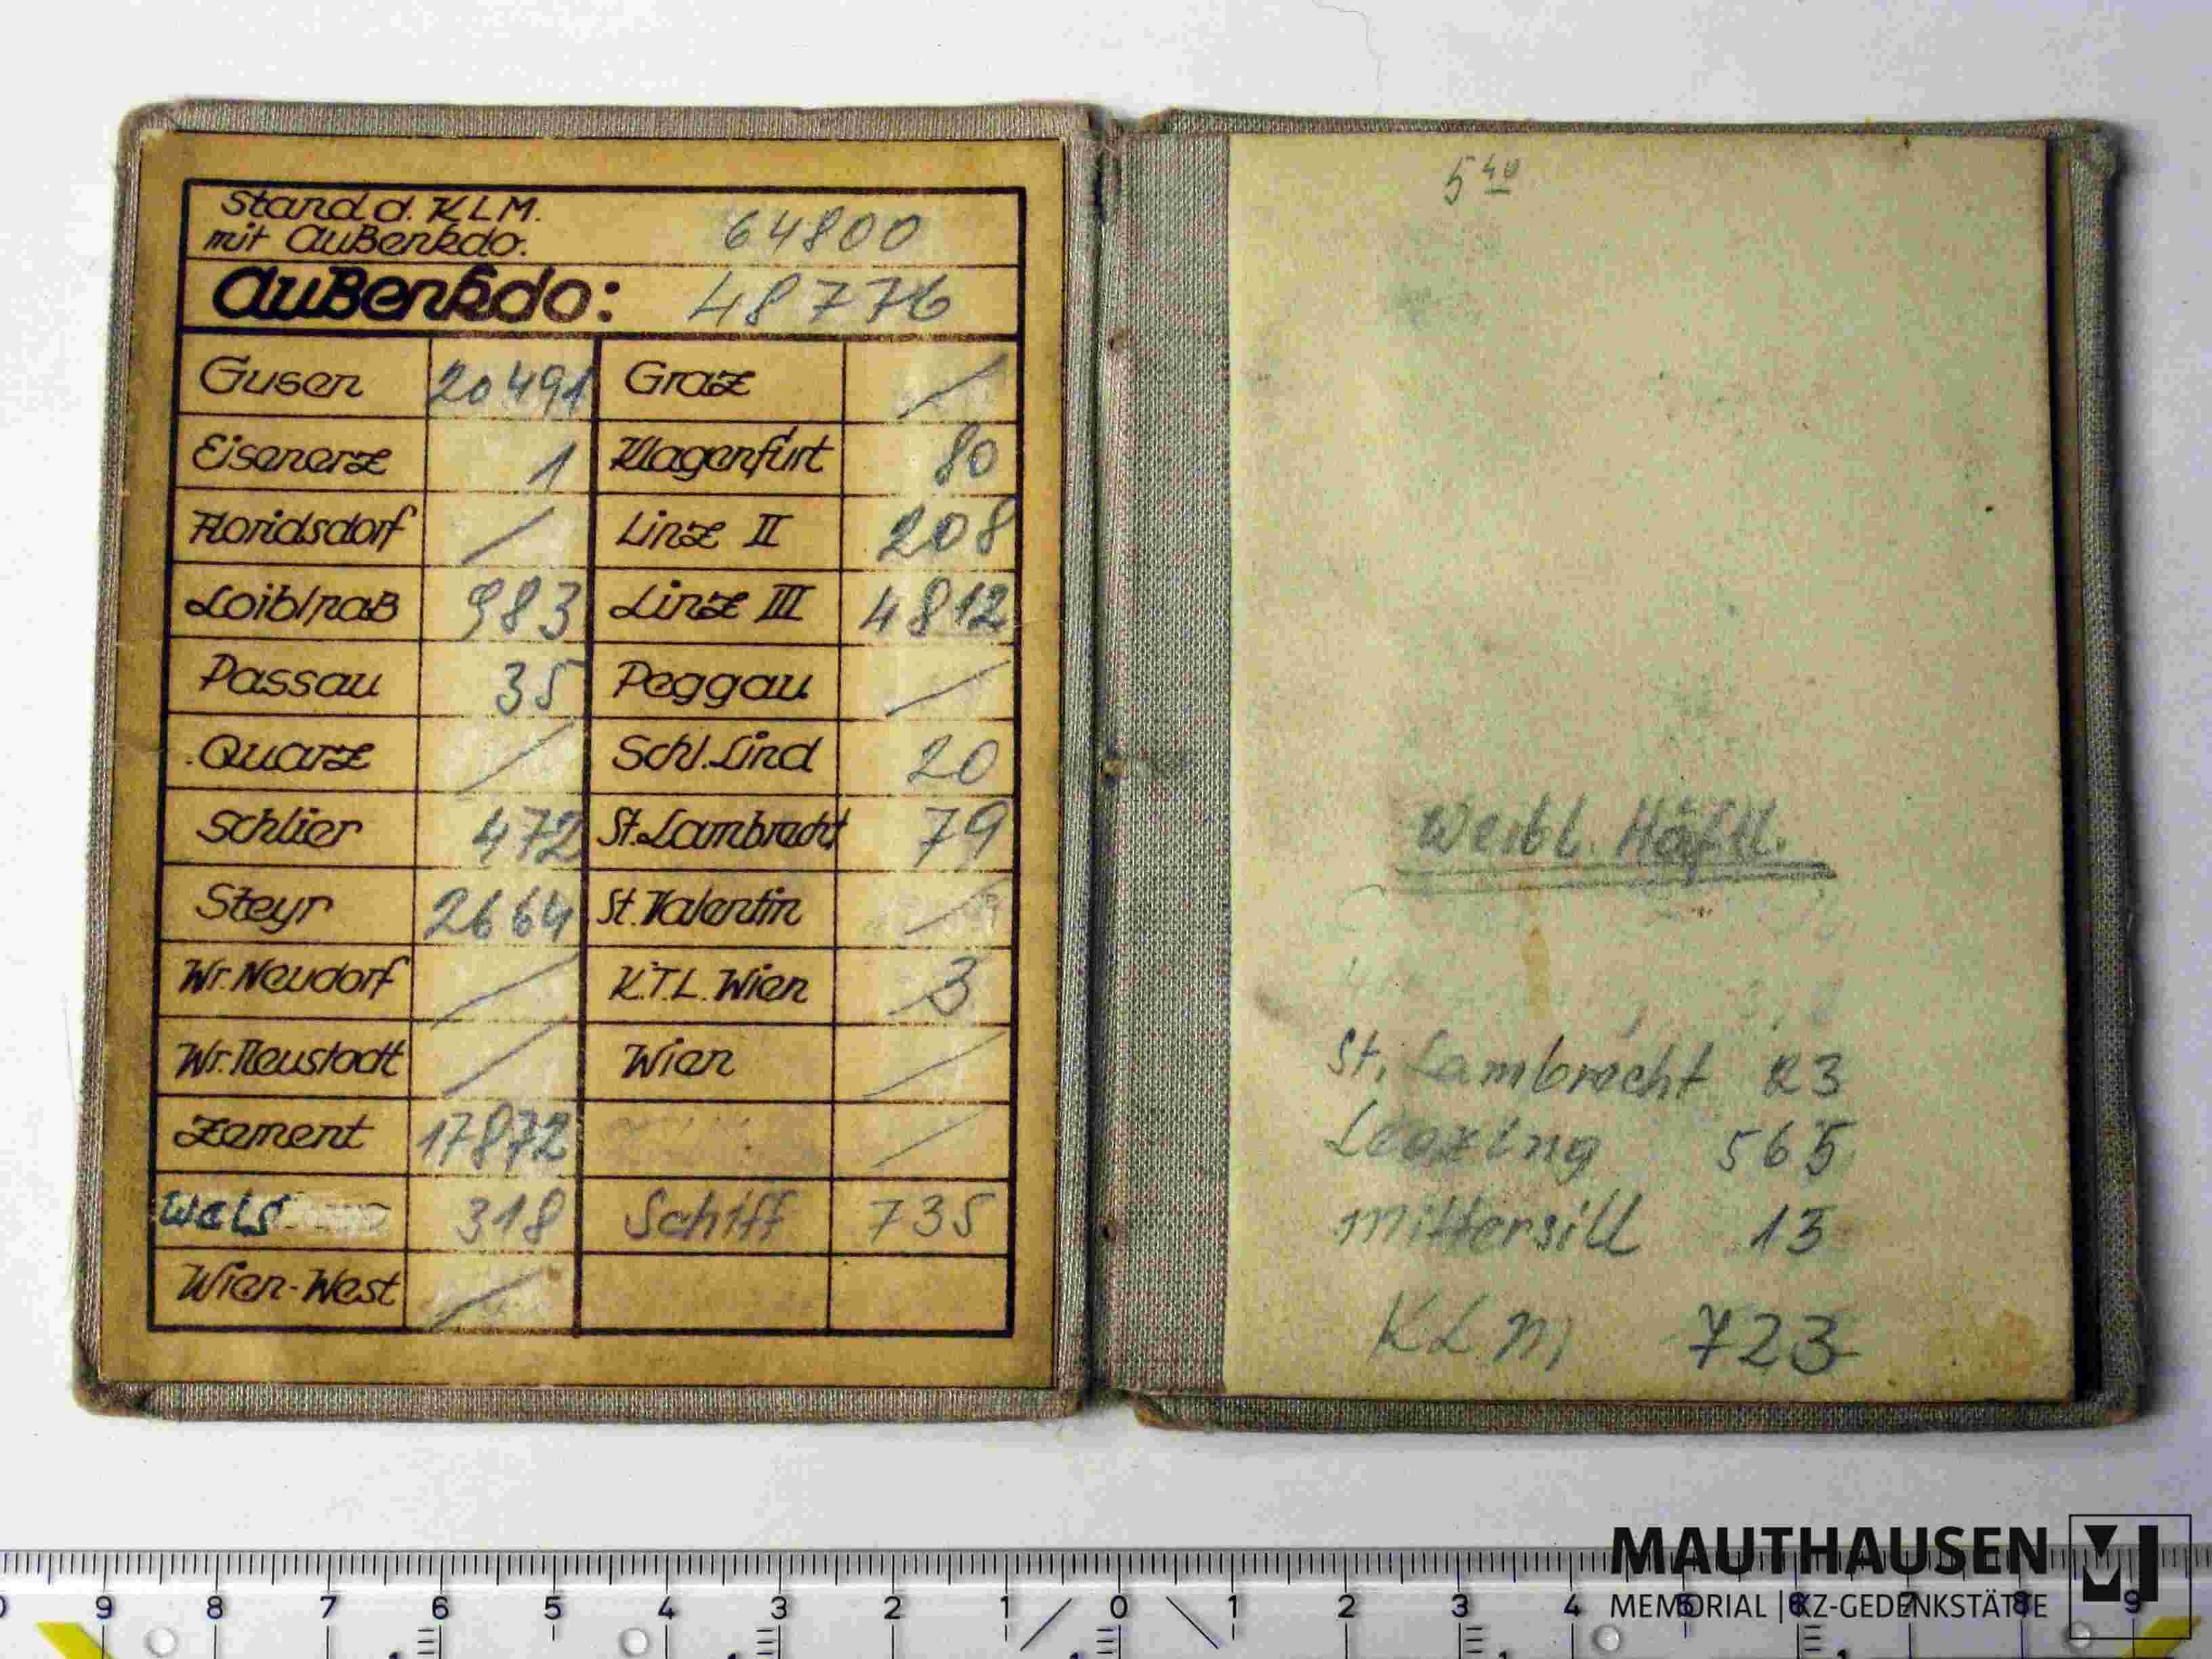 Stand d. KLM.
mit Außenkdo. 64800
Außenkdo: 48776
Gusen 20491 Graz /
Eisenerz 1 Klagenfurt 80
Floridsdorf / Linz II 208
Loiblpaß 983 Linz III 4812
Passau 35 Peggau /
Quarz / Schl. Lind 20
Schlier 472 St. Lambrecht 79
Steyr 2664 St. Valentin /
Wr. Neudorf / K.T.L. Wien 3
Wr. Neustadt / Wien /
Zement 17872 /
Wels 318 Schiff 735
Wien-West /
5 40
Weibl. Häftl.
St. Lambrecht 23
Lenzing 565
Mittersill 15
KLM 723
9 8 7 6 5 4 3 2 1 0 1 2 3 4 5 6 7 8 9
MAUTHAUSEN
MEMORIAL | KZ-GEDENKSTÄTTE